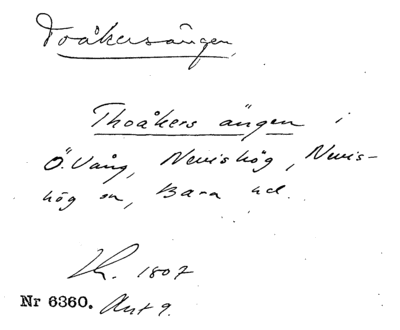 Toåkersängen
Thoåkers ängen i
Ö. Vång, Nevishög, Nevis-
hög sn, Bara hd.
Lk. 1807
Nr 6360. Akt 9.